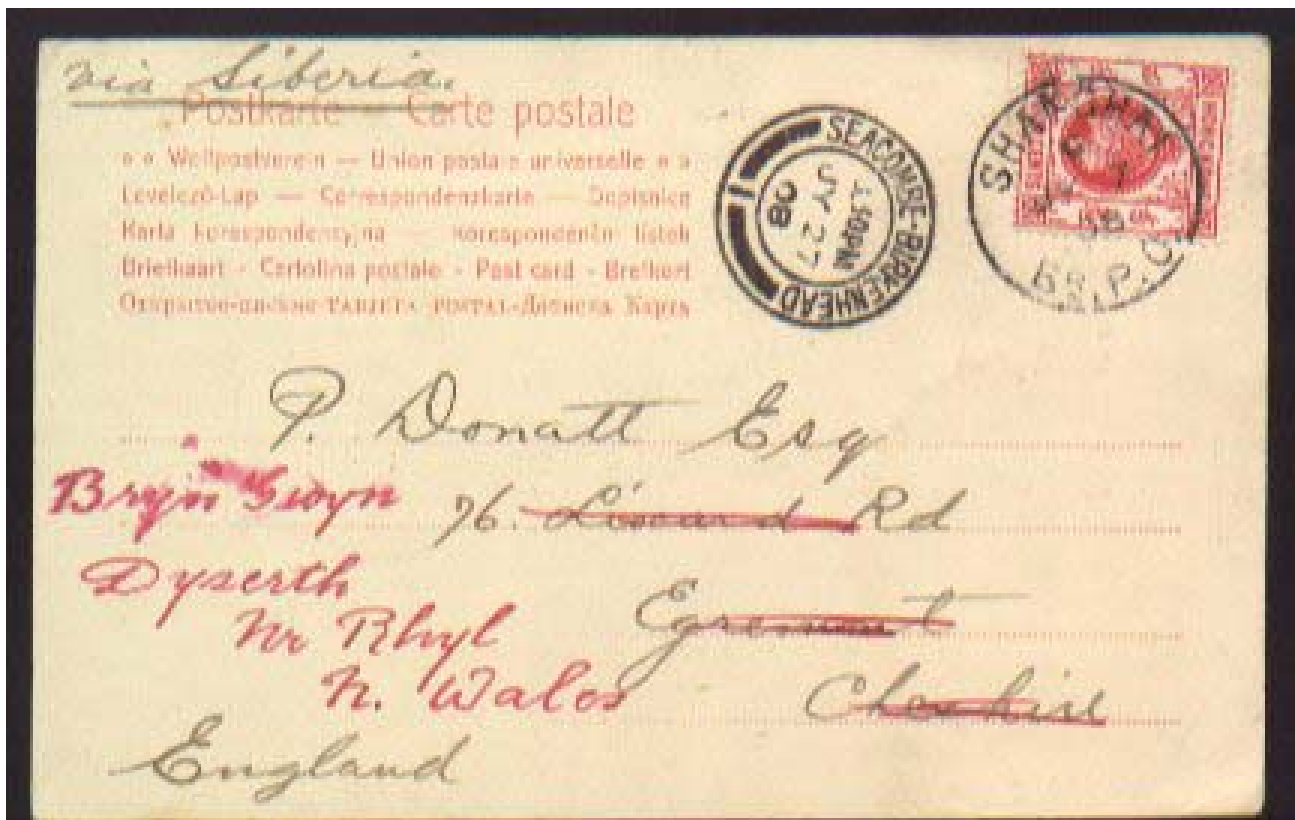 via Siberia.
Postkarte – Carte postale
Weltpostverein — Union postale universelle
Levelező-Lap — Correspondenzkarte — Dopisnice
Karta korespondencyjna — Korespondenční lístek
Briefkaart - Cartolina postale - Post card - Brefkort
TARJETA POSTAL
SEACOMBE-BIRKENHEAD
1
1.10PM
JY 27
08
SHANGHAI
BR. P.O.
P. Donatt Esq
76. Liscard Rd
Egremont
Cheshire
Bryn Gwyn
Dyserth
Nr Rhyl
N. Wales
England